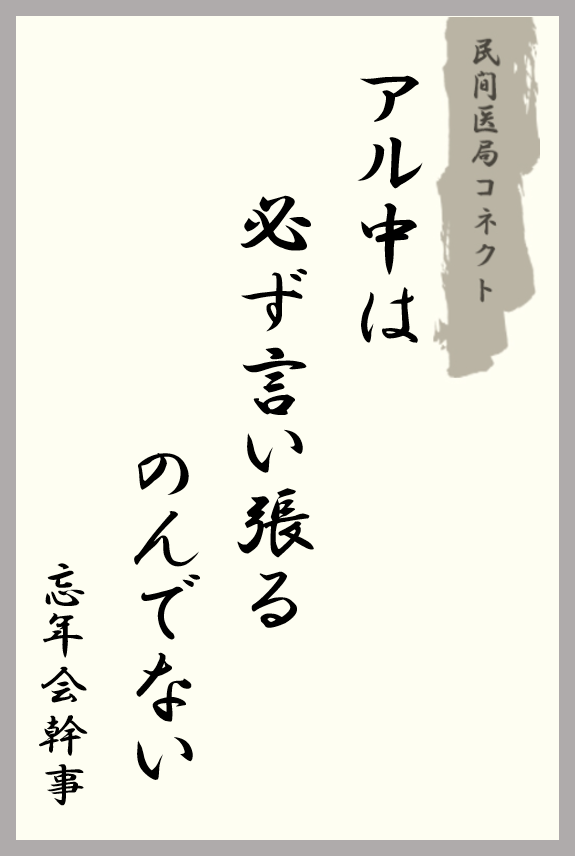 民間医局コネクト
アル中は
必ず言い張る
のんでない
忘年会幹事